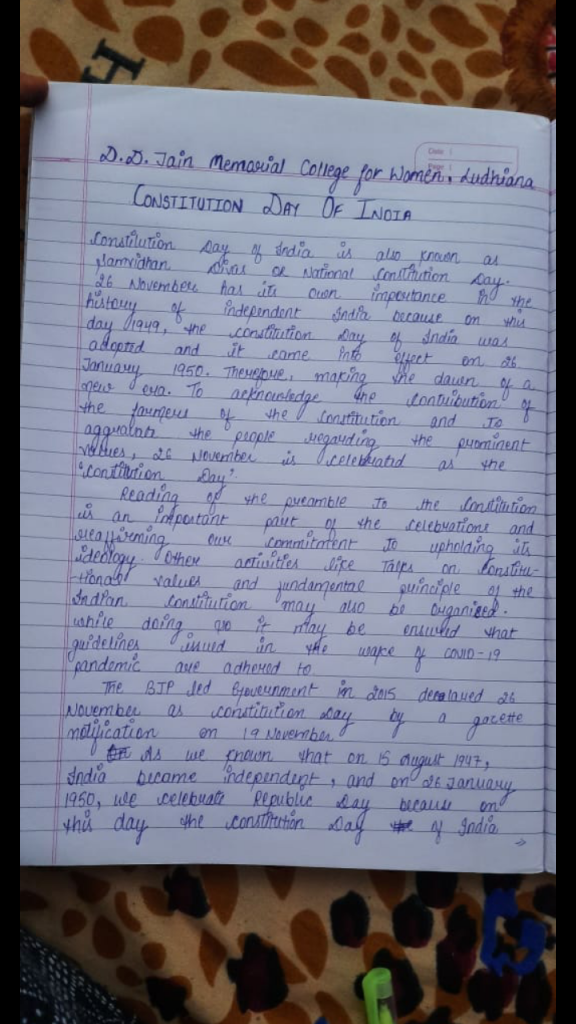 Date :
Page :
D.D. Jain Memorial College for Women, Ludhiana
CONSTITUTION DAY OF INDIA
Constitution Day of India is also known as
Samvidhan Divas or National Constitution Day.
26 November has its own importance in the
history of independent India because on this
day 1949, the constitution Day of India was
adopted and it came into effect on 26
January 1950. Therefore, making the dawn of a
new era. To acknowledge the contribution of
the farmers of the Constitution and to
aggravate the people regarding the prominent
values, 26 November is celebrated as the
'constitution Day'.
Reading of the preamble to the Constitution
is an important part of the celebrations and
reaffirming our commitment to upholding its
ideology. Other activities like Talks on constitu-
-tional values and fundamental principle of the
Indian constitution may also be organised.
while doing so it may be ensured that
guidelines issued in the wake of COVID-19
pandemic are adhered to.
The BJP led Government in 2015 declared 26
November as constitution Day by a gazette
notification on 19 November
As we known that on 15 August 1947,
India became independent, and on 26 January
1950, we celebrate Republic Day because on
this day the constitution Day of India